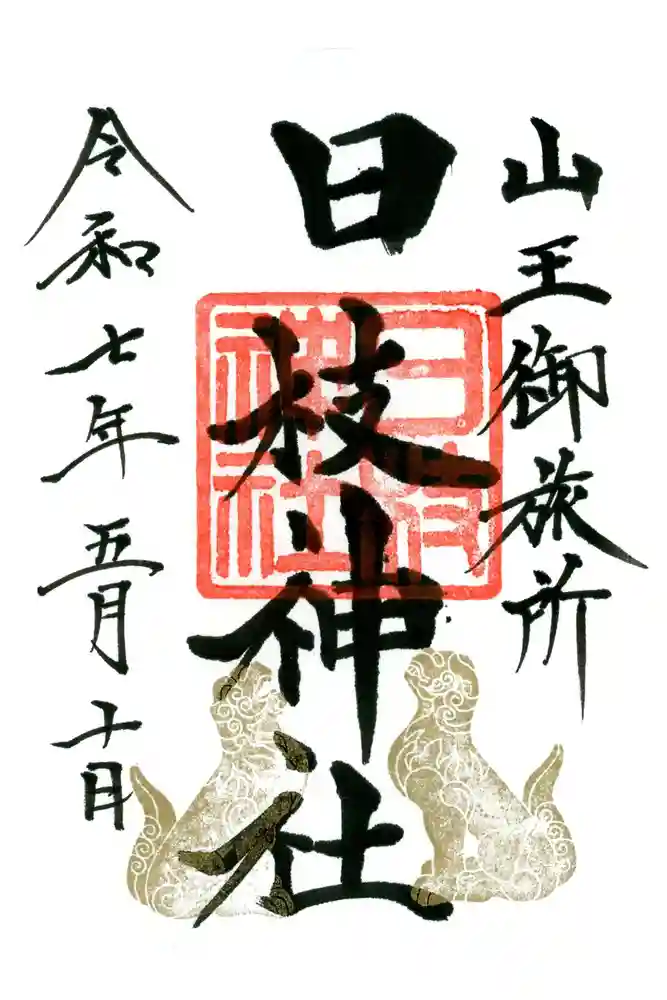 山王御旅所
日枝神社
令和七年五月十日
日枝神社